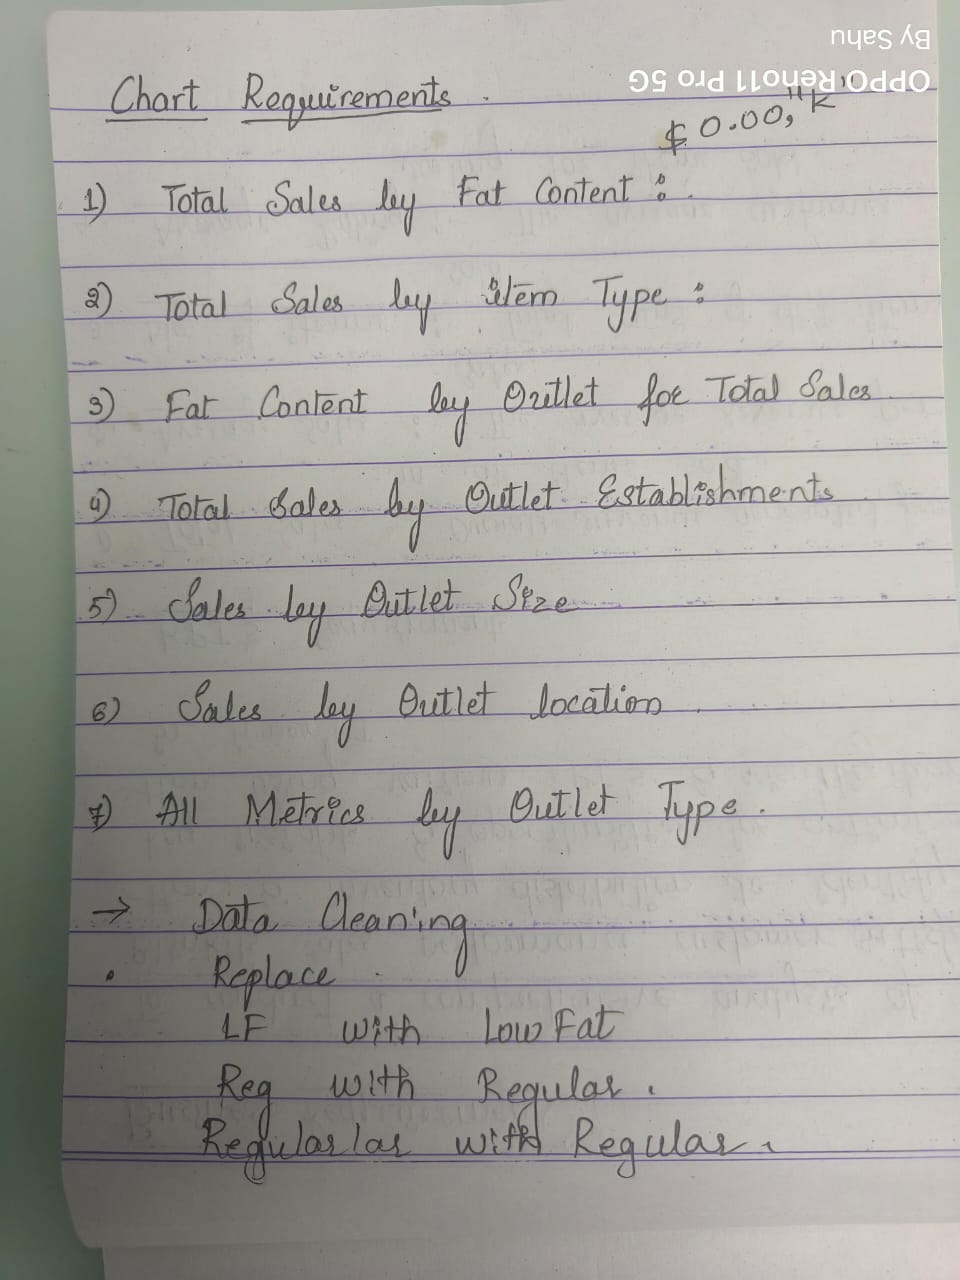 By Sahu
OPPO Reno11 Pro 5G
Chart Requirements.
$ 0.00, "K"
1) Total Sales by Fat Content :
2) Total Sales by item Type :
3) Fat Content by Outlet for Total Sales
4) Total Sales by Outlet Establishments
5) Sales by Outlet Size
6) Sales by Outlet location.
7) All Metrics by Outlet Type.
→ Data Cleaning
• Replace
LF with Low Fat
Reg with Regular.
Regularlar with Regular.